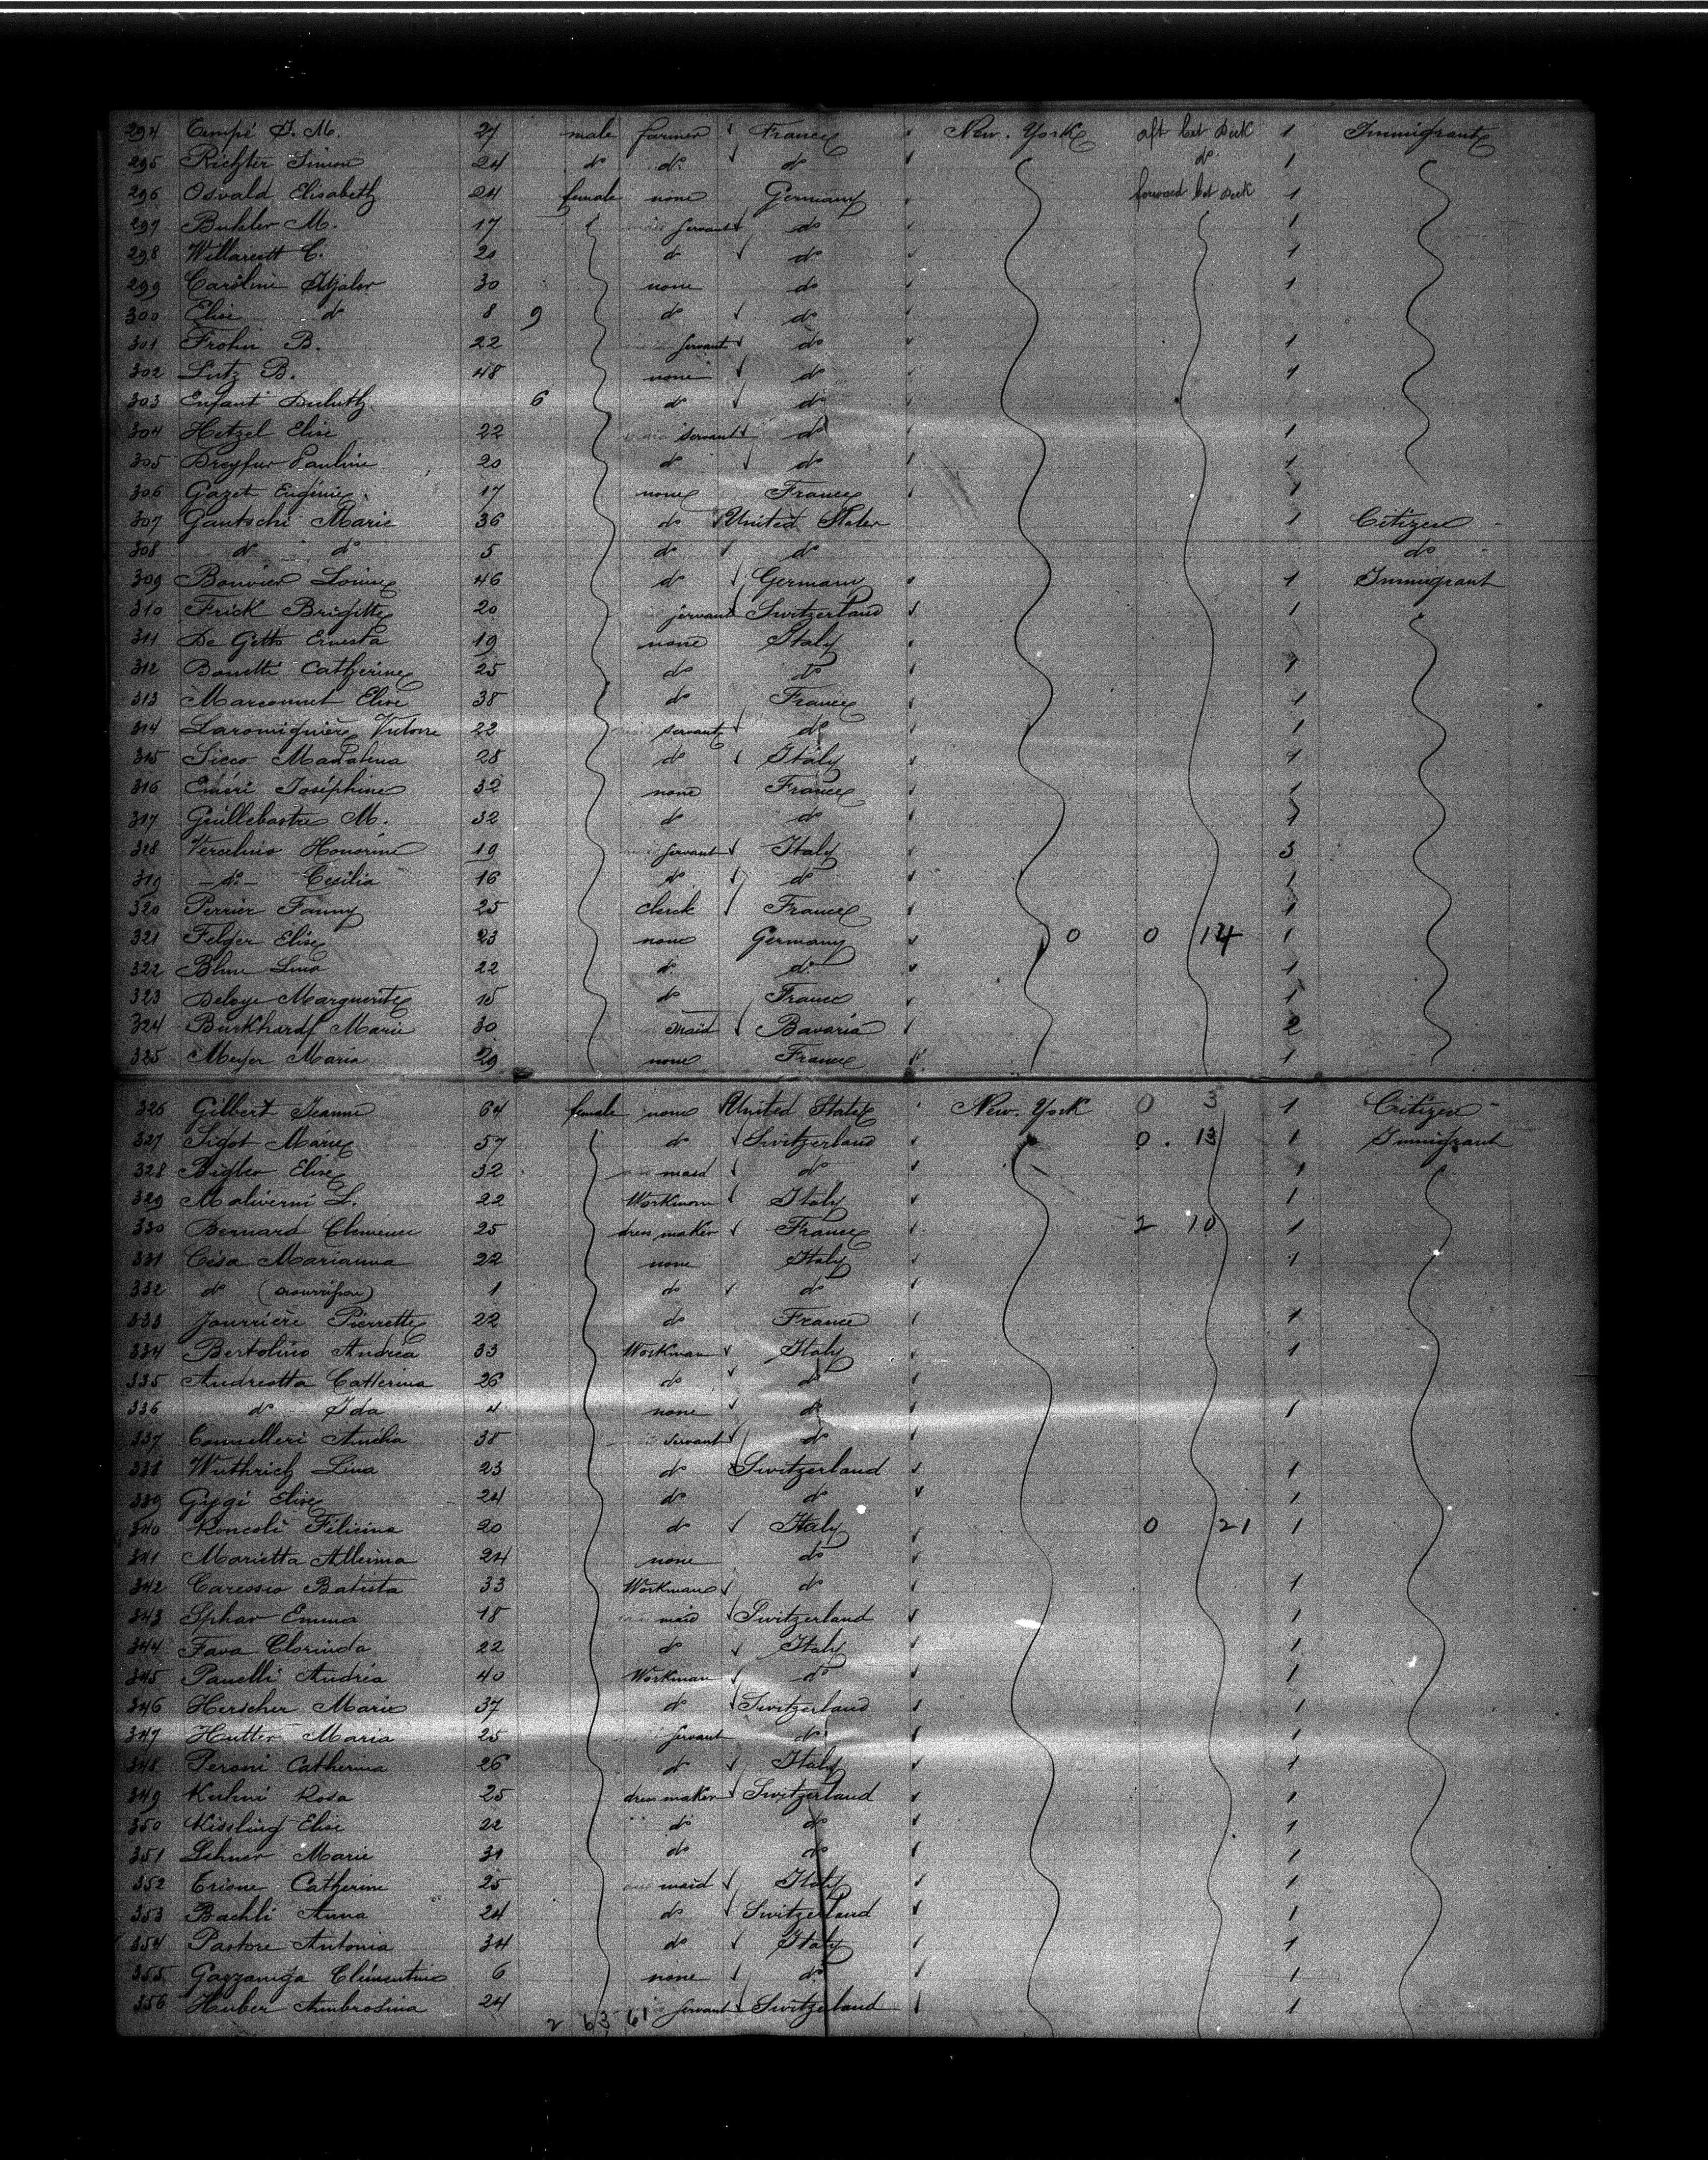 294 Cempé J. M. 27 male farmer France New. York aft bet Deck 1 Immigrant
295 Richter Simon 24 do do do do 1
296 Osvald Elisabeth 24 female none Germany forward bet Deck 1
297 Buhler M. 17 servant do 1
298 Willarett C. 20 do do 1
299 Caroline 30 none do 1
300 Elise do 8 9 do do
301 Frohn B. 22 servant do 1
302 Lutz B. 48 none do 1
303 Enfant 6 do do
304 Hetzel Elise 22 servant do 1
305 Dreyfus Pauline 20 do do 1
306 Gazet Eugénie 17 none France 1
307 Gautschi Marie 36 do United States 1 Citizen
308 do do 5 do do do
309 Bouvier Louise 46 do Germany 1 Immigrant
310 Frick Brigitte 20 servant Switzerland 1
311 De Getto Ernesta 19 none Italy
312 Bonetti Catherine 25 do do 1
313 Marconnet Elise 38 do France 1
314 Laromiguière Victore 22 servant do 1
315 Sicco Madalena 28 do Italy 1
316 Eméri Joséphine 32 none France 1
317 Guillebastre M. 32 do do 1
318 Vercelinio Honorine 19 servant Italy 3
319 do Cecilia 16 do do 1
320 Perrier Fanny 25 clerck France 1
321 Felger Elise 23 none Germany 0 0 14 1
322 Blum Lina 22 do do 1
323 Deloye Marguerite 15 do France 1
324 Burkhardt Marie 30 maid Bavaria 2
325 Meyer Maria 29 none France 1
326 Gilbert Jeanne 64 female none United States New. York 0 3 1 Citizen
327 Sigot Marie 57 do Switzerland 0. 13 1 Immigrant
328 Bigler Elise 32 maid do 1
329 Maliverni L. 22 Workmom Italy 1
330 Bernard Clemence 25 dress maker France 2 10 1
331 Césa Marianna 22 none Italy 1
332 do (nourrisson) 1 do do
333 Jourrière Pierrette 22 do France 1
334 Bertolino Andrea 33 Workman Italy 1
335 Andreatta Catterina 26 do do
336 do Ida 4 none do 1
337 Conselleri Amélia 38 servant do
338 Wuthrich Lina 23 do Switzerland 1
339 Gygi Elise 24 do do 1
340 Roncoli Félicina 20 do Italy 0 21 1
341 Marietta Alleima 24 none do
342 Caressio Batista 33 Workman do 1
343 Sphar Emma 18 maid Switzerland 1
344 Fava Clorinda 22 do Italy 1
345 Panelli Andréa 40 Workman do 1
346 Herscher Marie 37 do Switzerland 1
347 Hutter Maria 25 servant do 1
348 Peroni Catherina 26 do Italy 1
349 Kuhni Rosa 25 dress maker Switzerland 1
350 Kissling Elise 22 do do 1
351 Lehner Marie 31 do do 1
352 Erione Catherine 25 maid Italy 1
353 Bachli Anna 24 do Switzerland 1
354 Pastore Antonia 34 do Italy 1
355 Gazzaniga Clémentine 6 none do 1
356 Huber Ambrosina 24 servant Switzerland 1
2 63 61